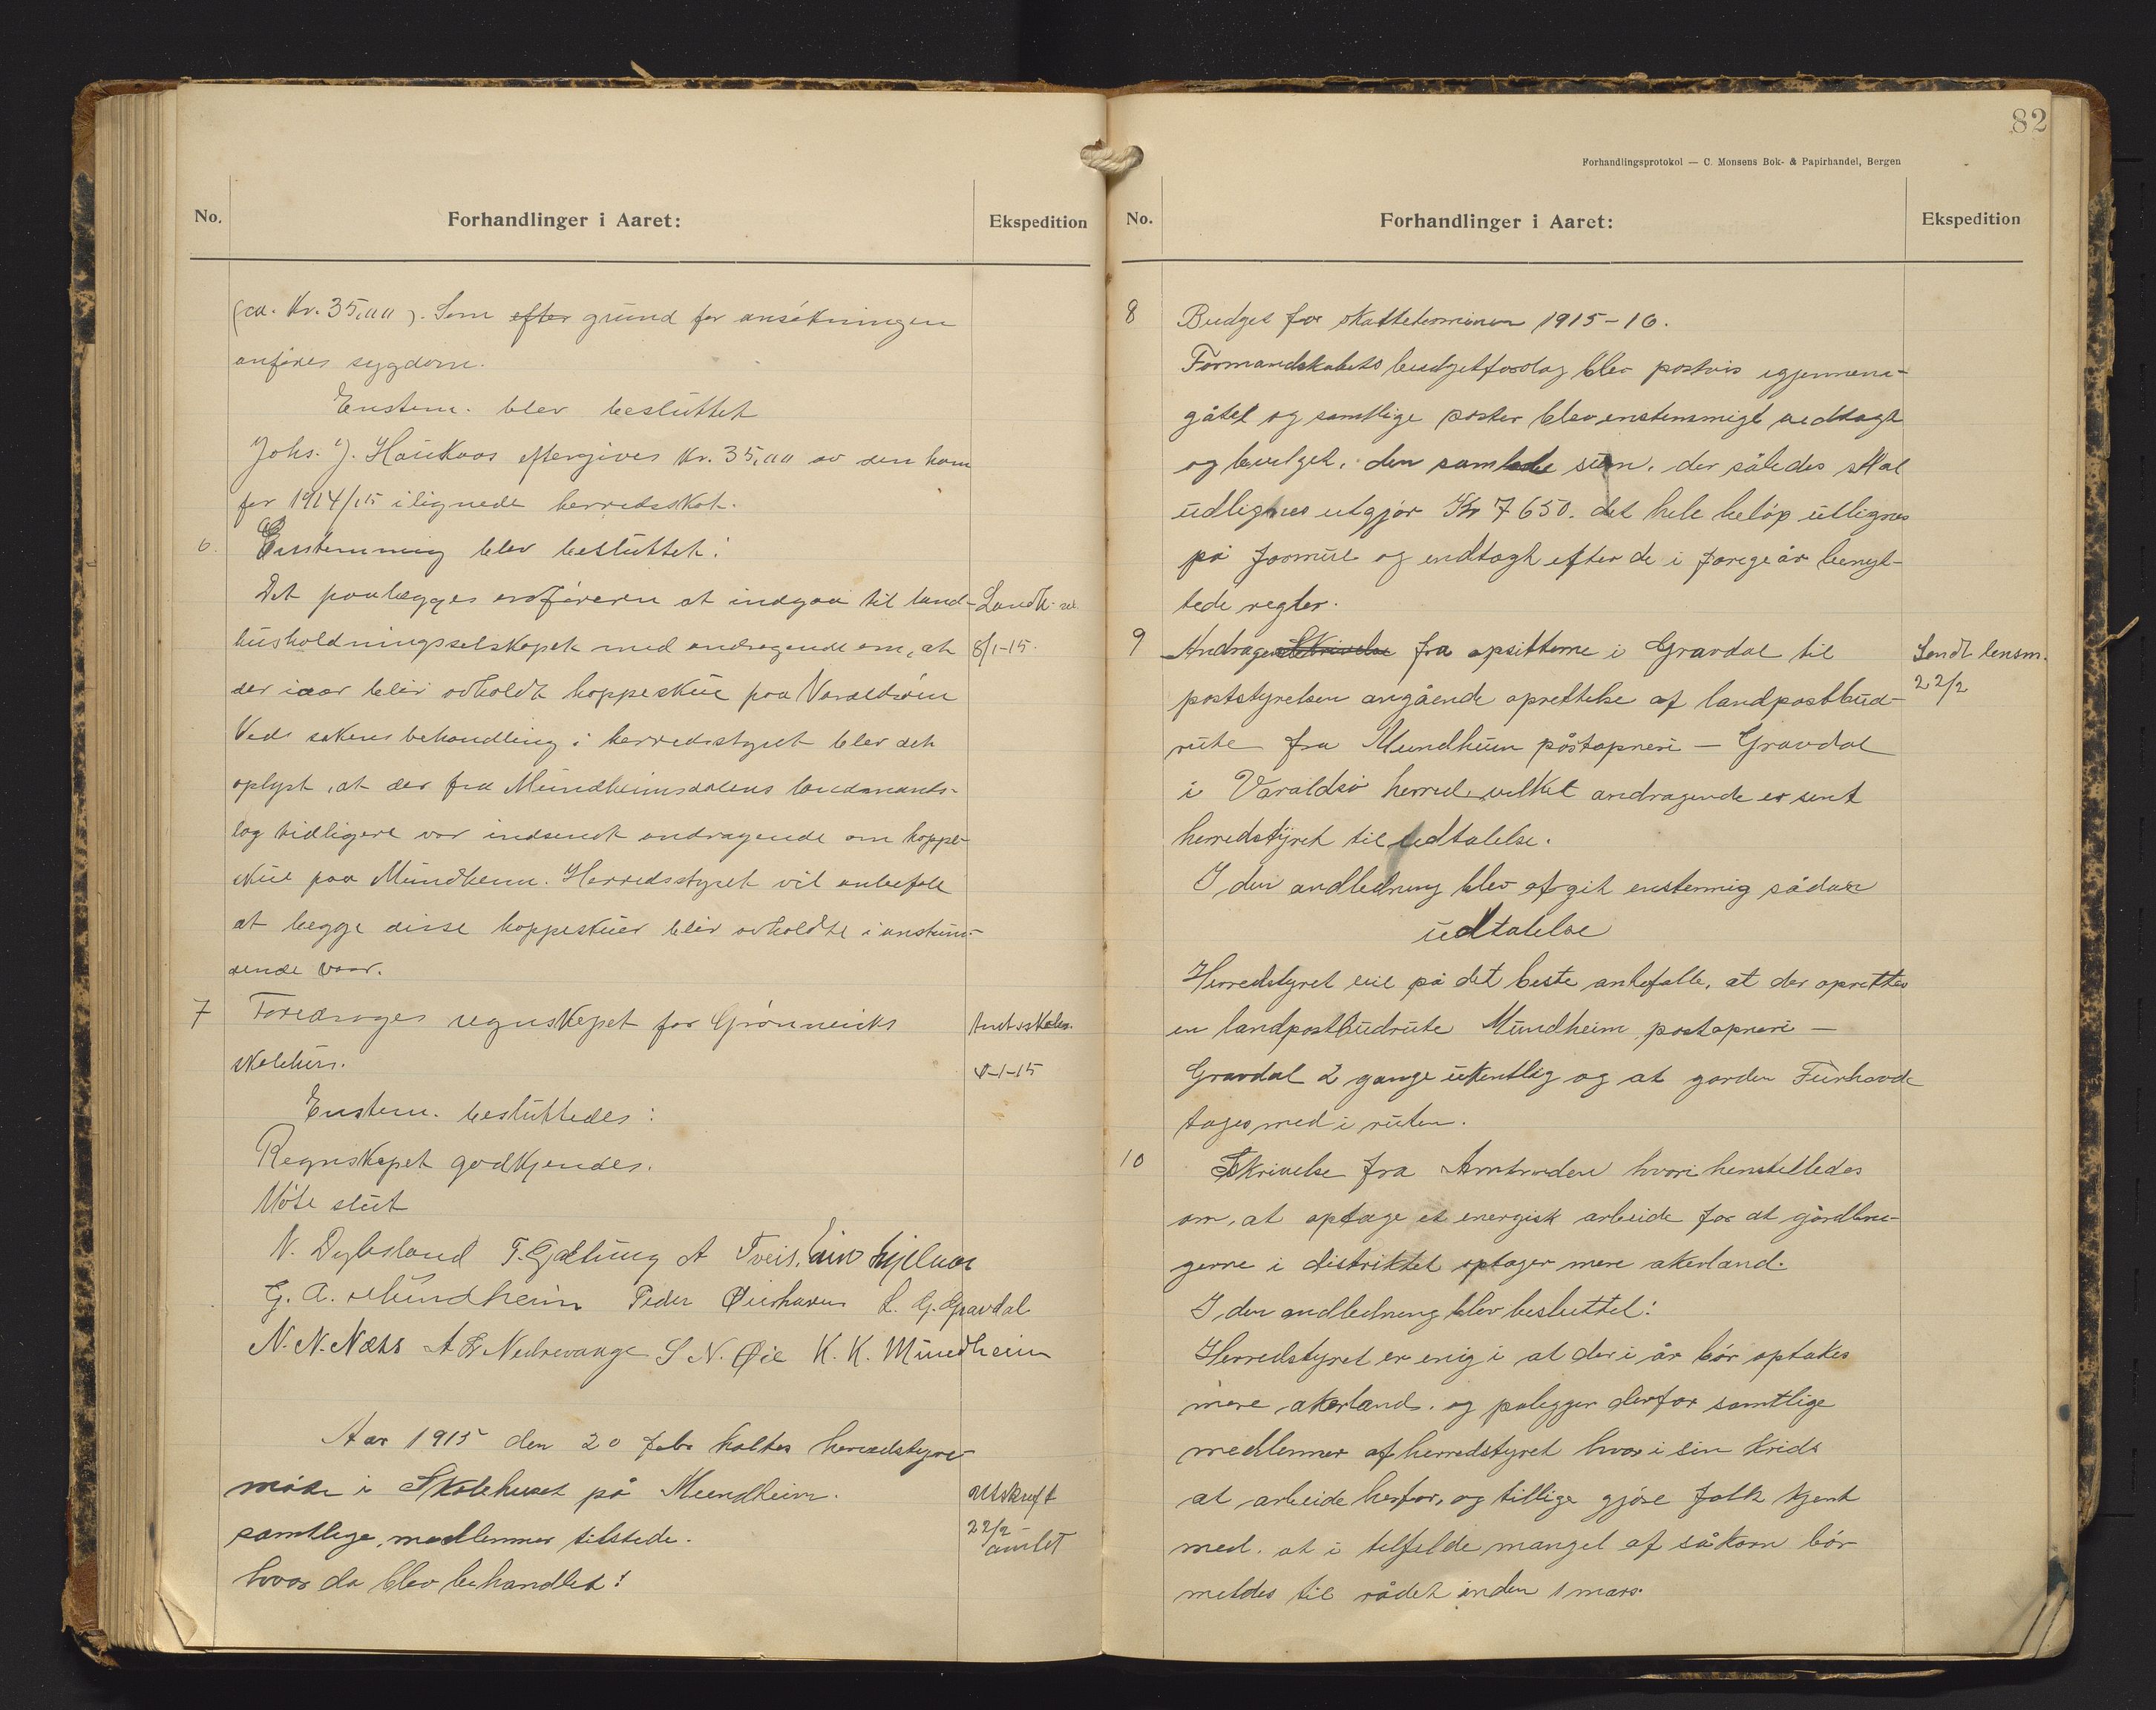 No.
Forhandlinger i Aaret:
Ekspedition
(ca. Kr. 35,00). Som efter grund for ansökningen
anføres sygdom.
Enstem. blev besluttet
Johs. J. Haukaas eftergives Kr. 35,00 av den ham
for 1914/15 ilignede herredsskat.
6. Enstemmig blev besluttet:
Det paalægges ordføreren at indgaa til land-
husholdningsselskapet med andragende om, at
der iaar blir avholdt hoppeskue paa Varaldsøen
Veds sakens behandling i herredsstyret blev det
oplyst, at der fra Mundheimsdalens landmands-
lag tidligere var indsendt andragende om hoppe-
skue paa Mundheim. Herredsstyret vil anbefale
at begge disse hoppeskuer blir avholdte i anstun-
dende vaar.
Landh. sel.
8/1-15.
7 Foredroges regnskapet for Grønneviks
skolehus.
Amtsskolen.
8-1-15
Enstem. besluttedes:
Regnskapet godkjendes.
Møte slut
N. Dybsland T. Gjetung A Tveit. Eiv Mjelvar
G. A. Mundheim Peder Øierhavn L. G. Gravdal
N. N. Næss A H Nedrevaage S N. Øie K. K. Mundheim
Aar 1915 den 20 febr holtes herredstyre-
møde i Skolehuset på Mundheim.
samtlige medlemmer tilstede.
hvor da blev behandlet:
Utskrift
22/2 -
amtet
82
Forhandlingsprotokol — C. Monsens Bok- & Papirhandel, Bergen
No.
Forhandlinger i Aaret:
Ekspedition
8 Budget for skatteterminen 1915-16.
Formandskabets budgetforslag blev postvis igjennem-
gåtet og samtlige poster blev enstemmigt vedtagt
og bevilget. den samlede sum. der således skal
udlignes utgjør Kr 7650. det hele beløp utlignes
på formue og indtægt efter de i forige år benyt-
tede regler.
9 Andragende Skrivelse fra opsitterne i Gravdal til
poststyrelsen angående oprettelse af landpostbud-
rute fra Mundheim postopneri — Gravdal
i Varaldsø herred. vilket andragende er sent
herredstyret til udtalelse.
Sendt lensm.
22/2
I den andledning blev afgit enstemig sådan
udtalelse
Herredstyret vil på det beste anbefalle, at der oprettes
en landpostbudrute Mundheim postopneri —
Gravdal 2 gange ukentlig og at garden Furhovde
tages med i ruten.
10 Skrivelse fra Amtmanden hvori henstilledes
om, at optage et energisk arbeide for at gårdbru-
gerne i distriktet optager mere akerland.
I den andledning blev besluttet:
Herredstyret er enig i at der i år bør optakes
mere akerland. og pålegger derfor samtlige
medlemmer af herredstyret hvor i sin krids
at arbeide herfor, og tillige gjøre folk kjent
med. at i tilfelde mangel af såkorn bør
meldes til rådet inden 1 mars.